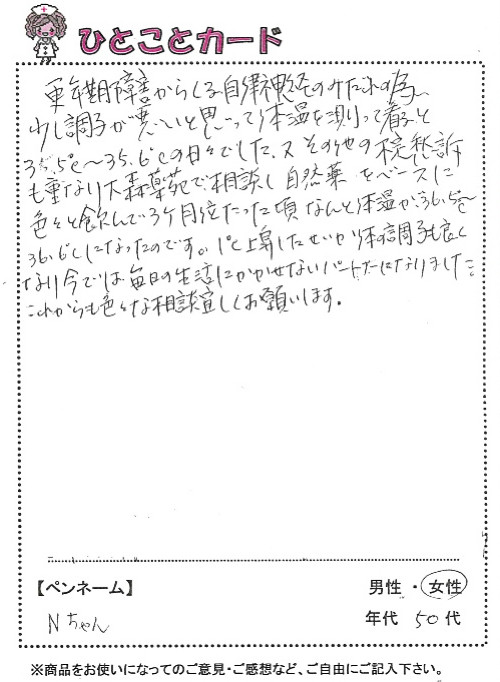 ひとことカード
更年期障害からくる自律神経のみだれの為、
少し調子が悪いと思って体温を測って看ると
35.5℃〜35.6℃の日々でした。又その他の不定愁訴
も重なり大森薬苑で相談し自然薬をベースに
色々と飲んで3ヶ月位たった頃なんと体温が36.5℃〜
36.6℃になったのです。1℃上昇したせいか体の調子も良く
なり今では毎日の生活にかかせないパートナーになりました。
これからも色々な相談宜しくお願いします。
【ペンネーム】 男性・女性
Nちゃん 年代 50代
※商品をお使いになってのご意見・ご感想など、ご自由にご記入下さい。